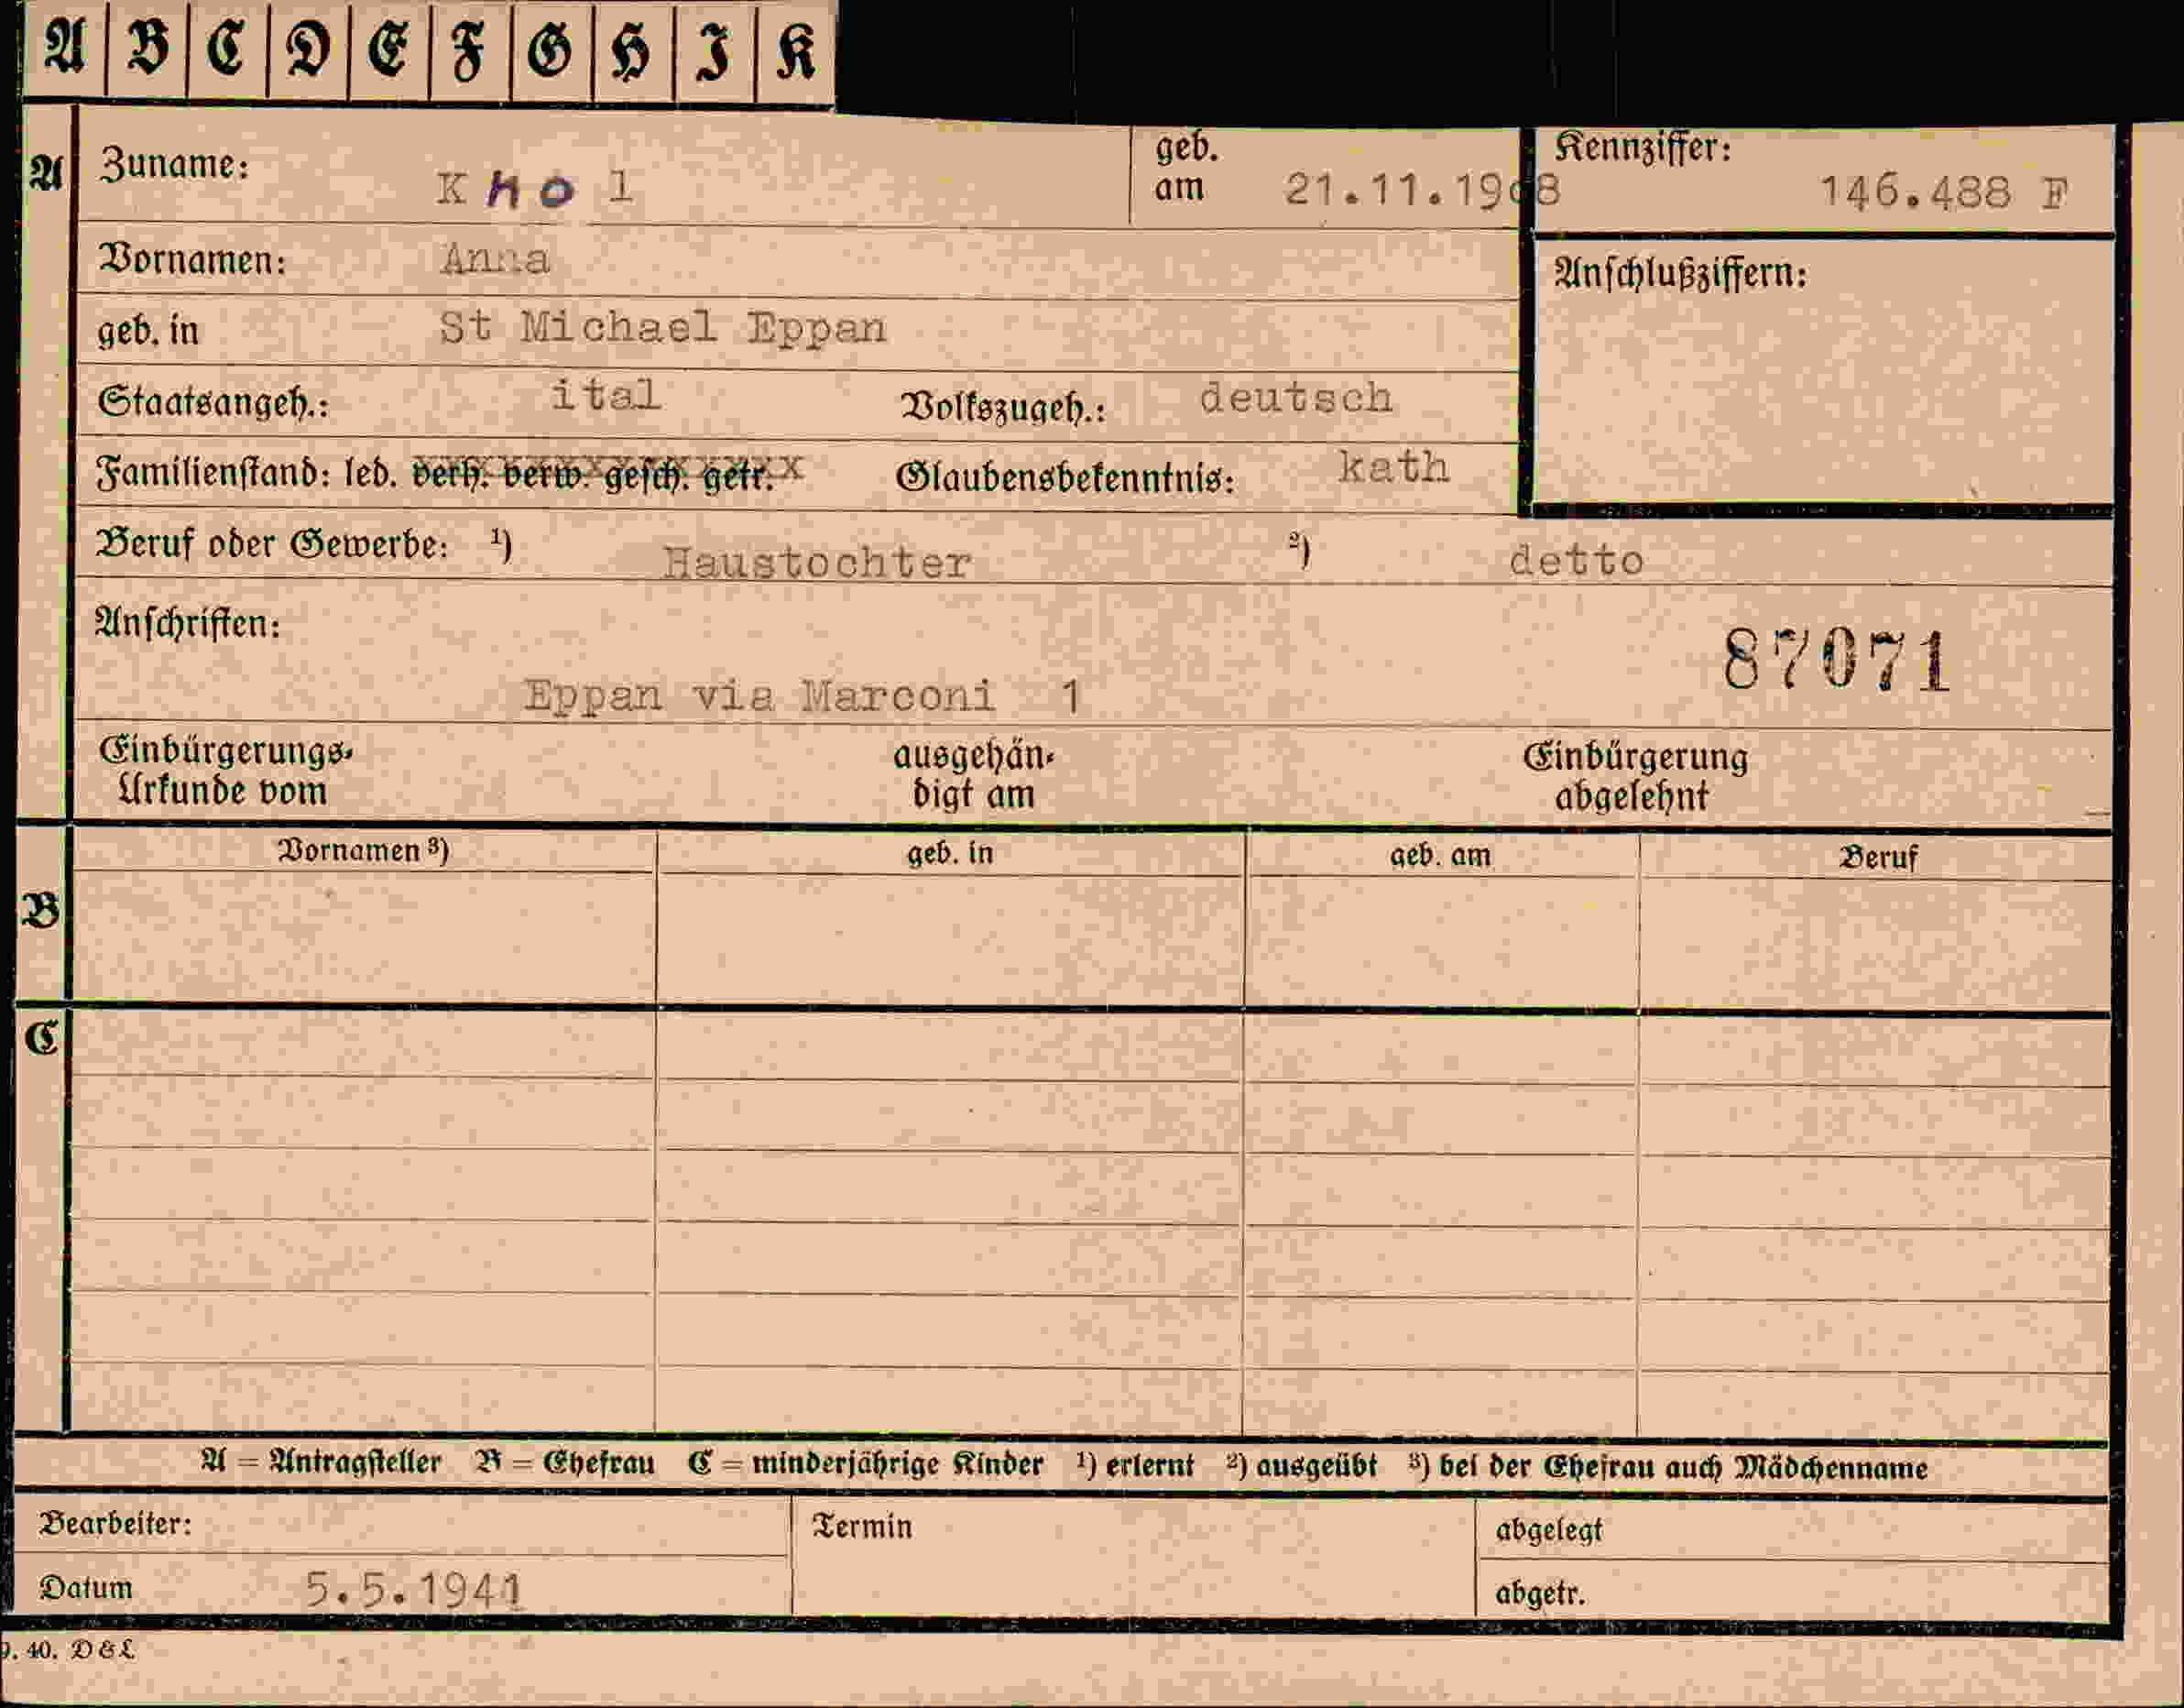 A B C D E F G H I K
A Zuname: Khol geb. am 21.11.1908 Kennziffer: 146.488 F
Vornamen: Anna Anschlußziffern:
geb. in St Michael Eppan
Staatsangeh.: ital Volkszugeh.: deutsch
Familienstand: led. verh. verw. gesch. getr. Glaubensbekenntnis: kath
Beruf oder Gewerbe: 1) Haustochter 2) detto
Anschriften: 87071
Eppan via Marconi 1
Einbürgerungs- ausgehän- Einbürgerung
Urkunde vom digt am abgelehnt
Vornamen 3) geb. in geb. am Beruf
B
C
A = Antragsteller B = Ehefrau C = minderjährige Kinder 1) erlernt 2) ausgeübt 3) bei der Ehefrau auch Mädchenname
Bearbeiter: Termin abgelegt
Datum 5.5.1941 abgetr.
40. D & L